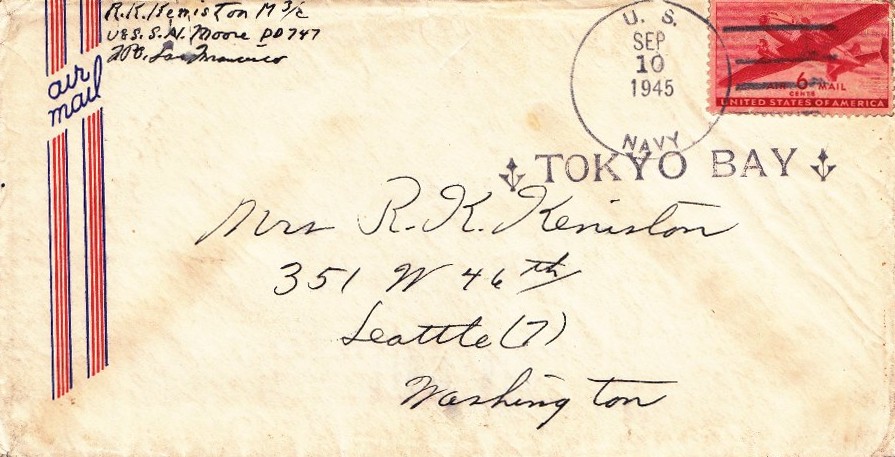 R.K. Keniston M 3/c
U.S.S. S.N. Moore DD 747
F.P.O. San Francisco
air
mail
U. S.
SEP
10
1945
NAVY
TOKYO BAY
AIR 6 MAIL
CENTS
UNITED STATES OF AMERICA
Mrs R. K. Keniston
351 W 46th
Seattle (7)
Washington